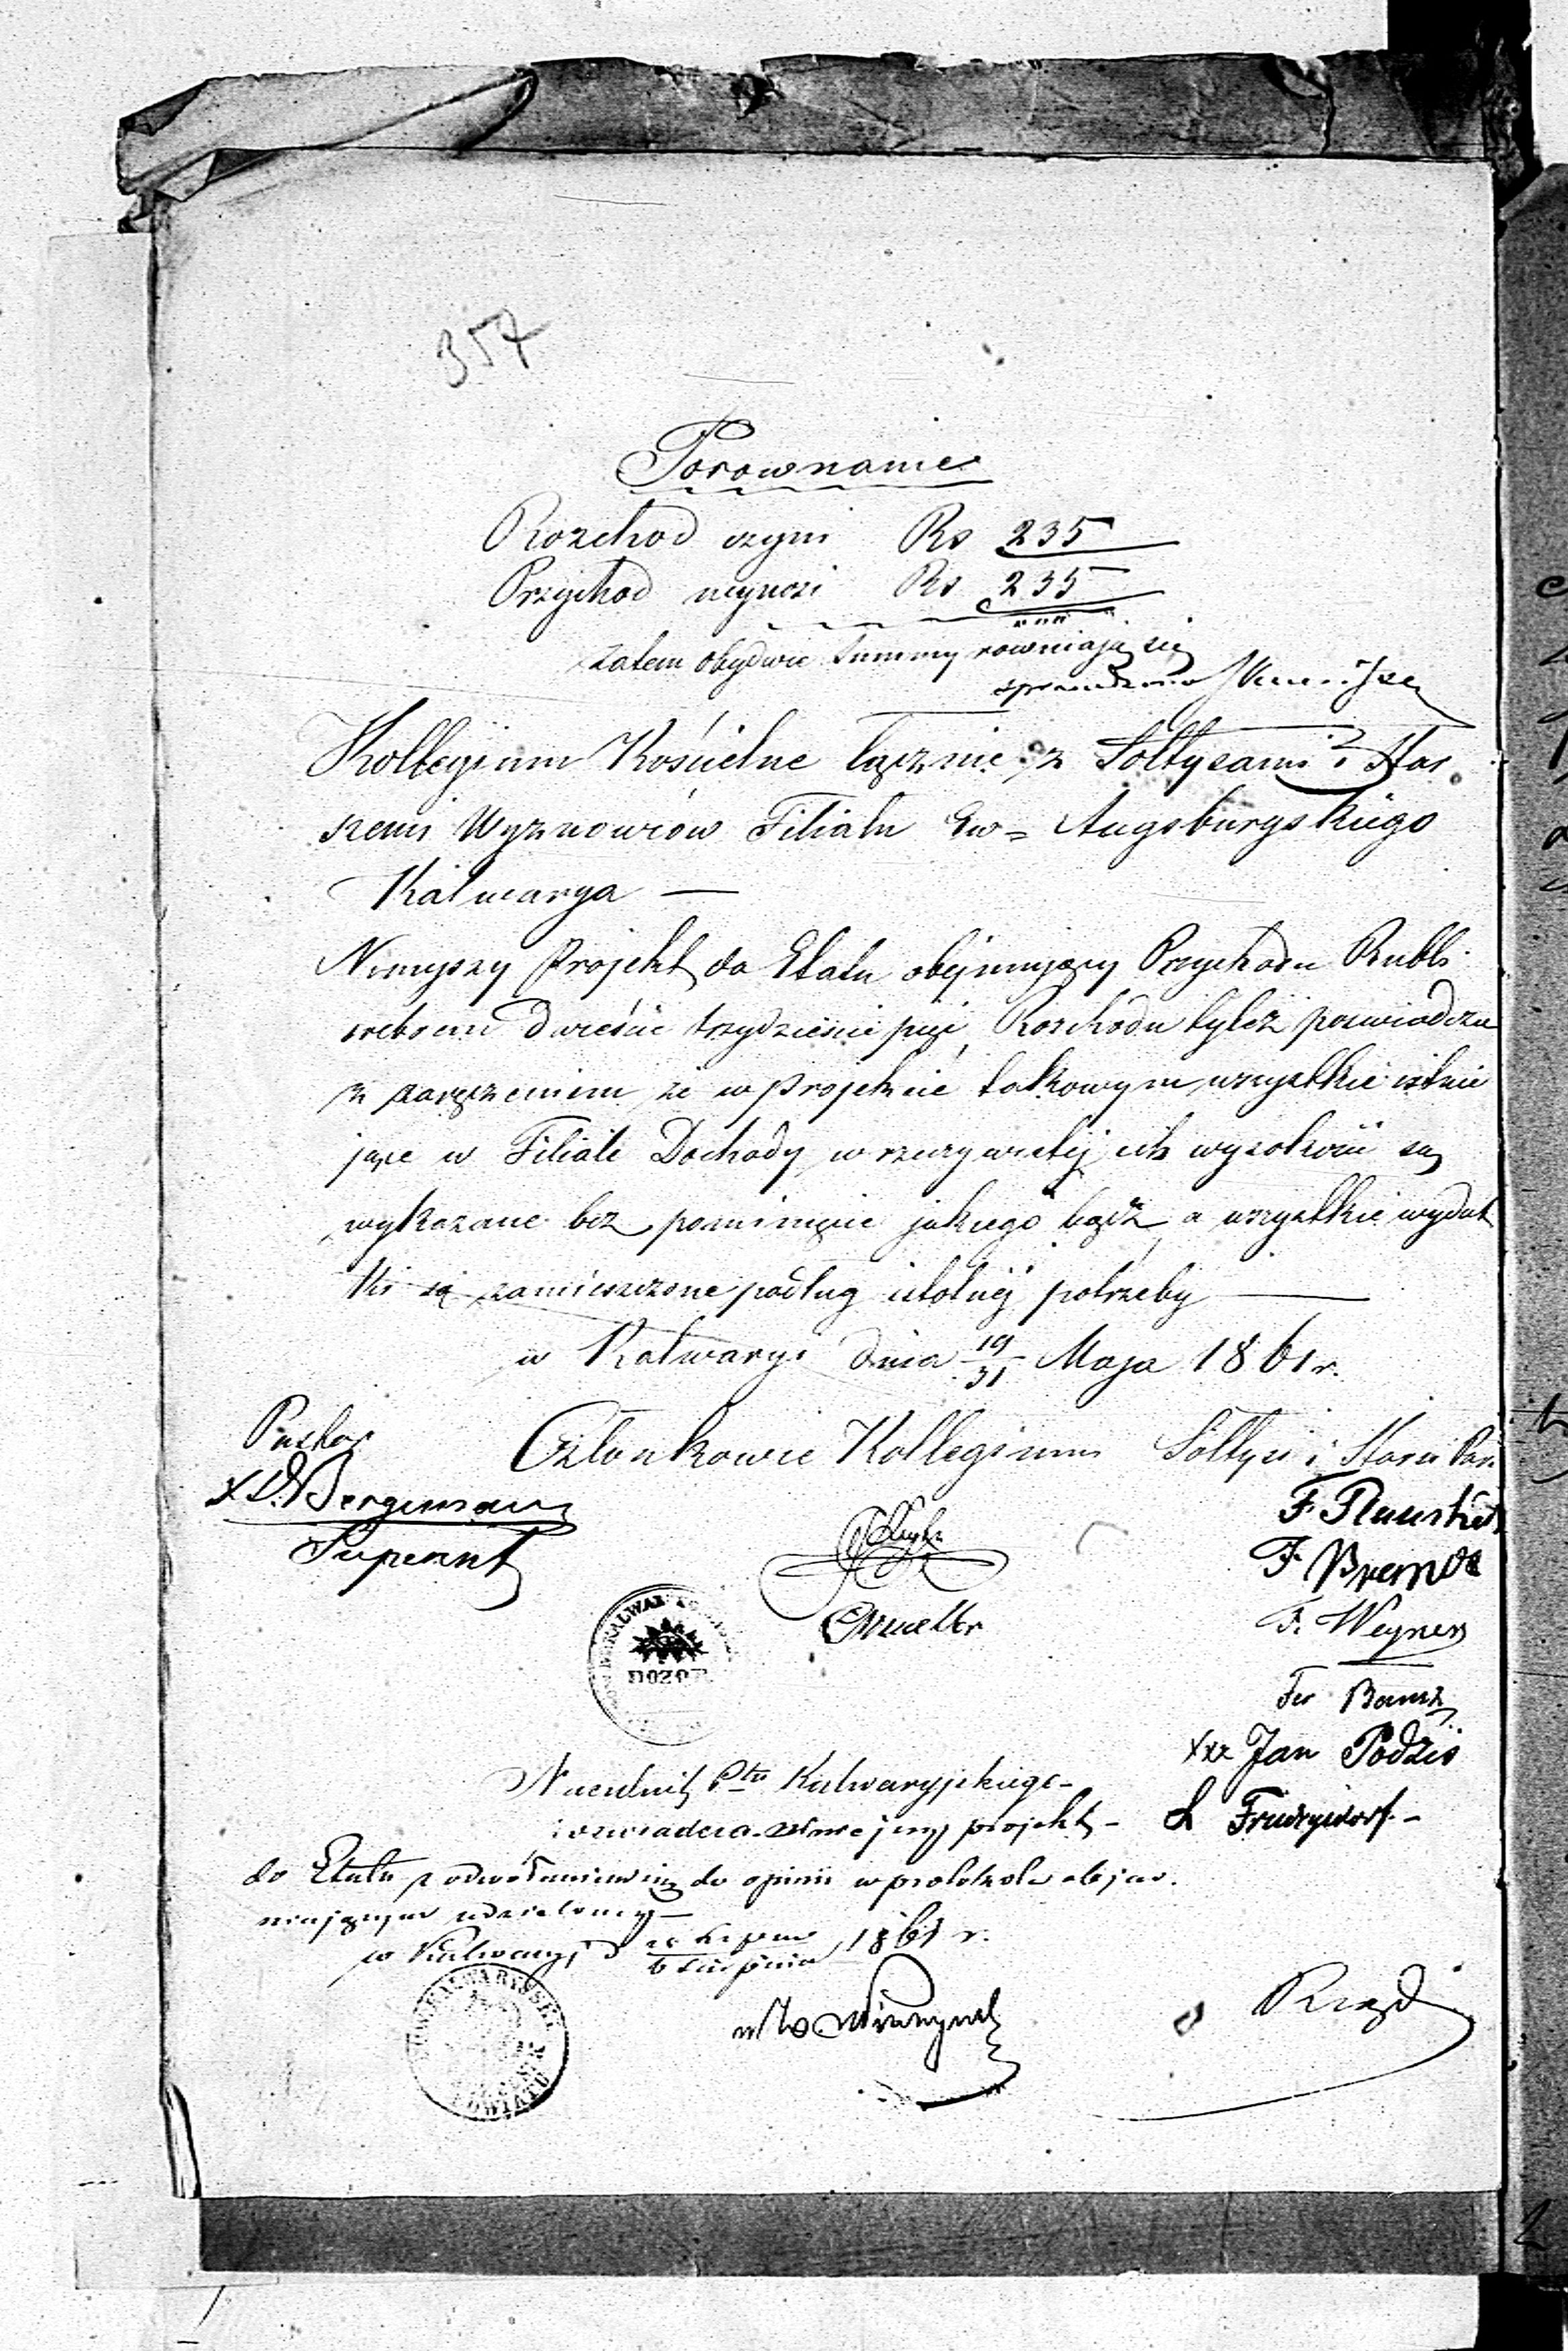 357
Porownanie
Rozchod czyni Rs 235
Przychod wynosi Rs 235
zatem obydwie summy rowniają się
sprawdzono
Kollegium Kościelne łącznie z Sołtysami i Star
szemi Wyznowców Filiału Ew= Augsburgskiego
Kalwarya —
Ninieyszy Projekt do Etatu obejmujący Przychodu Rubli
srebrem dwieście trzydzieście pięć, Rozchodu tyleż poswiadcza
z zaręczeniem że w projekcie takowym wszystkie istnie
jące w Filiale Dochody w rzeczywistej ich wysokości są
wykazane bez pominięcie jakiego bądź a wszystkie wydat
ki są zamieszczone podług istotnej potrzeby —
w Kalwaryi dnia 19/31 Maja 1861 r.
Pastor
Członkowie Kollegium
Sołtysi i Starsi Par.
X Bergemann
Superint
F.
F. Bremer
F. Wegner
Jan Podzis
DOZOR
Naczelnik Ptu Kalwaryjskiego
poswiadcza niniejszy projekt
do Etatu z odwołaniem się do opinii w protokole objas
niającym udzieloney —
w Kalwaryi d 25 Lipca / 6 Sierpnia 1861 r.